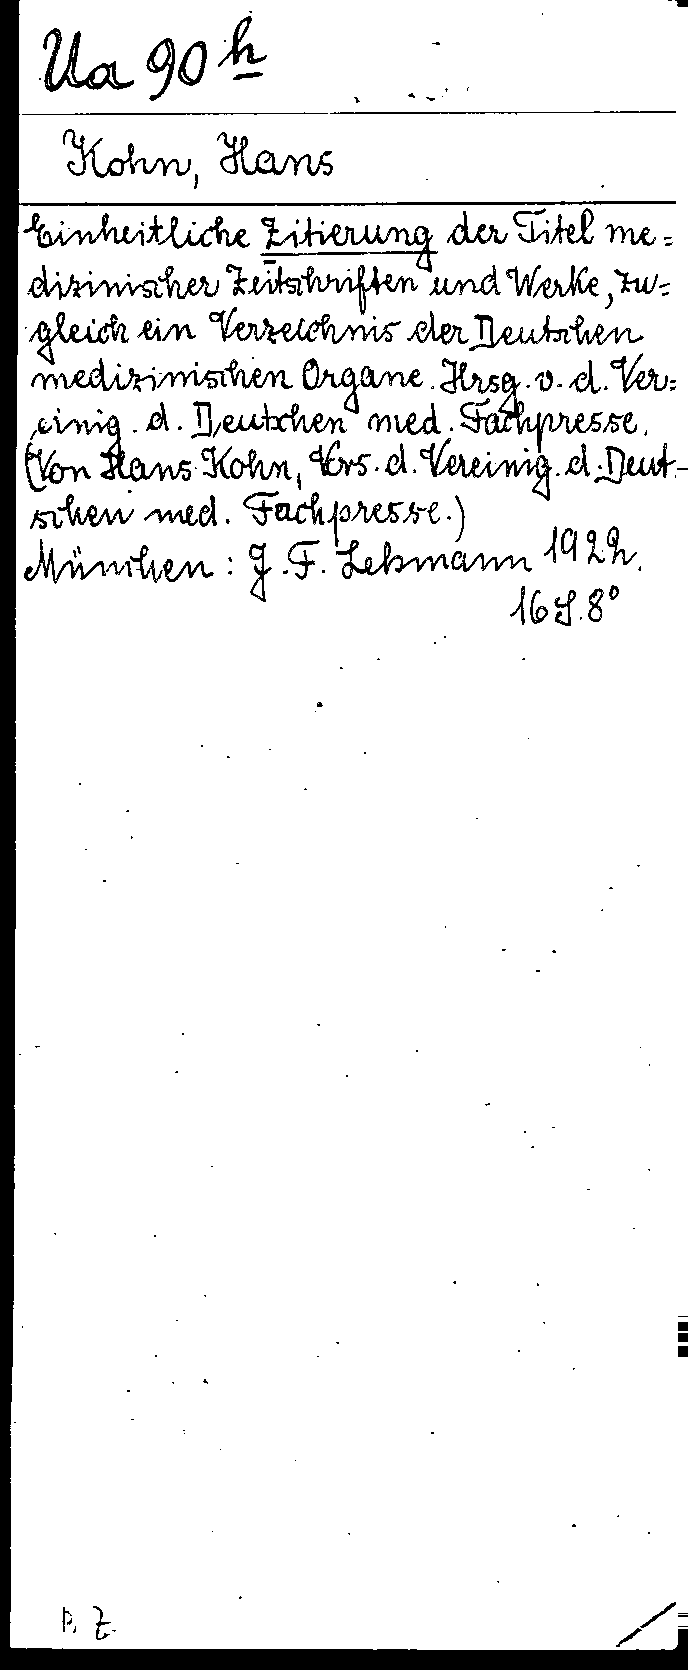 Ua 90 h
Kohn, Hans
Einheitliche Zitierung der Titel me=
dizinischer Zeitschriften und Werke, zu=
gleich ein Verzeichnis der Deutschen
medizinischen Organe. Hrsg. v. d. Ver=
einig. d. Deutschen med. Fachpresse.
(Von Hans Kohn, Vors. d. Vereinig. d. Deut-
schen med. Fachpresse.)
München: J. F. Lehmann 1922.
16 S. 8°
P. Z.